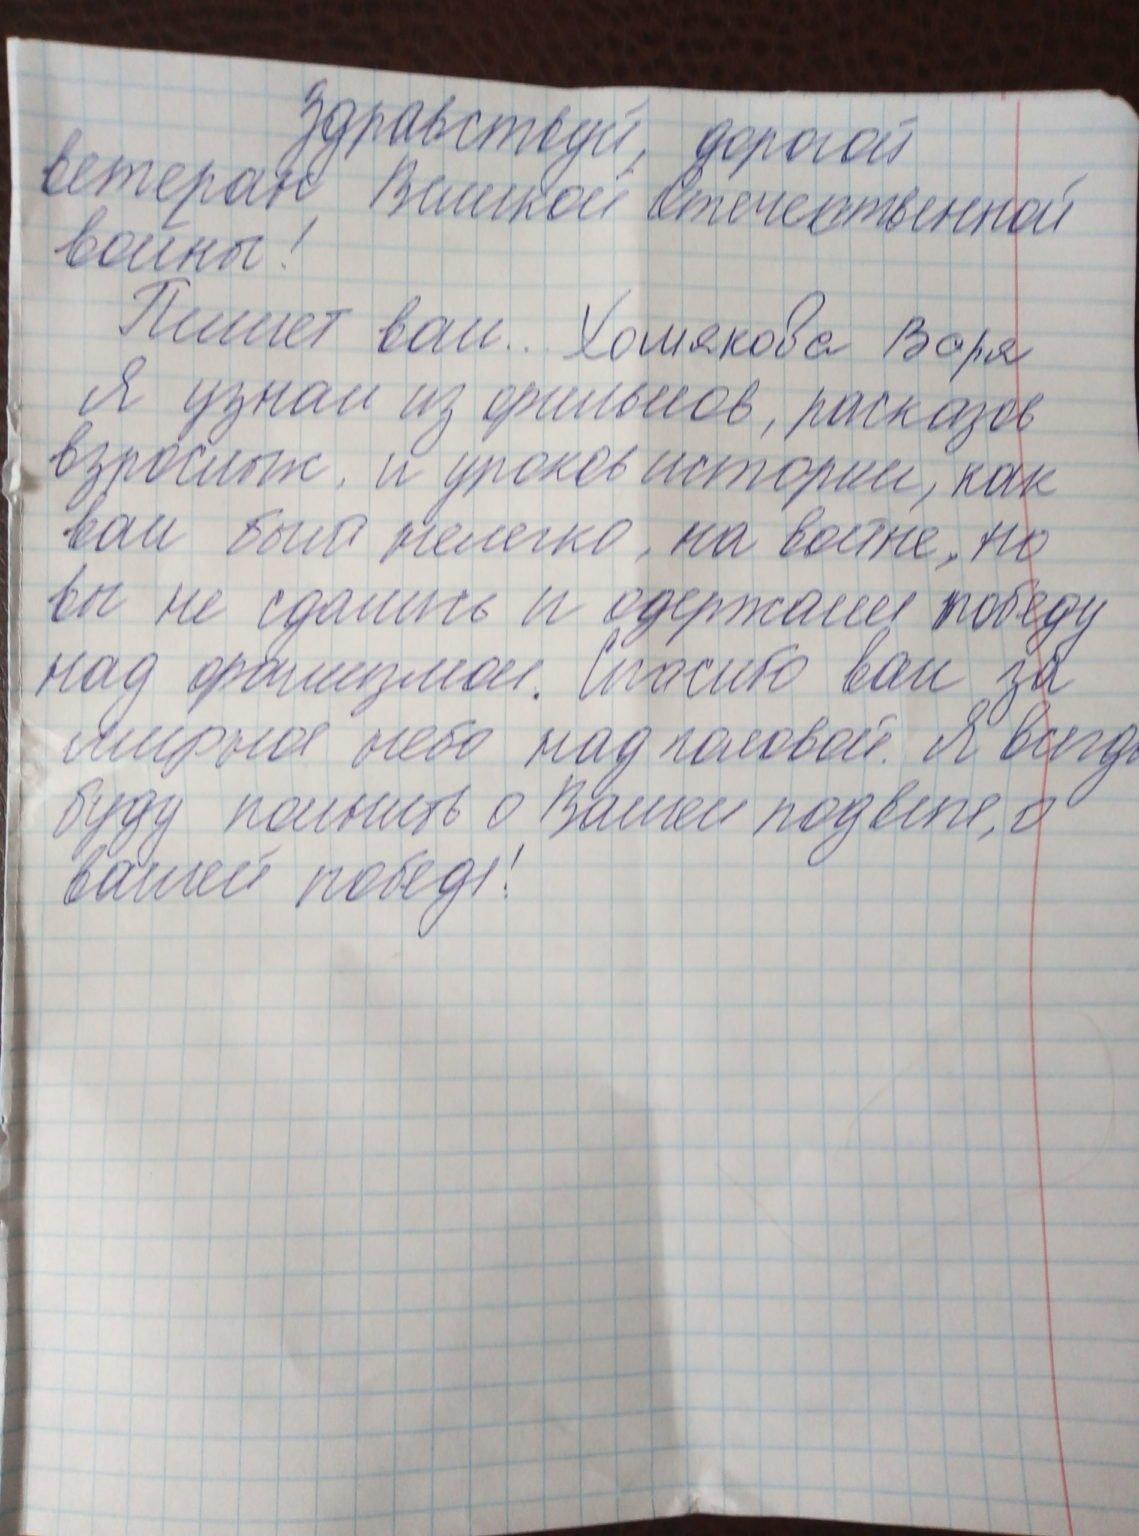 Здравствуй, дорогой
ветеран Великой Отечественной
войны!
Пишет вам.. Хомякова Варя
Я узнал из фильмов, расказов
взрослых, и уроков истории, как
вам было нелегко, на войне, но
вы не сдались и одержали победу
над фашизмом. Спасибо вам за
мирное небо над головой. Я всегда
буду помнить о Вашем подвиге, о
вашей победе!